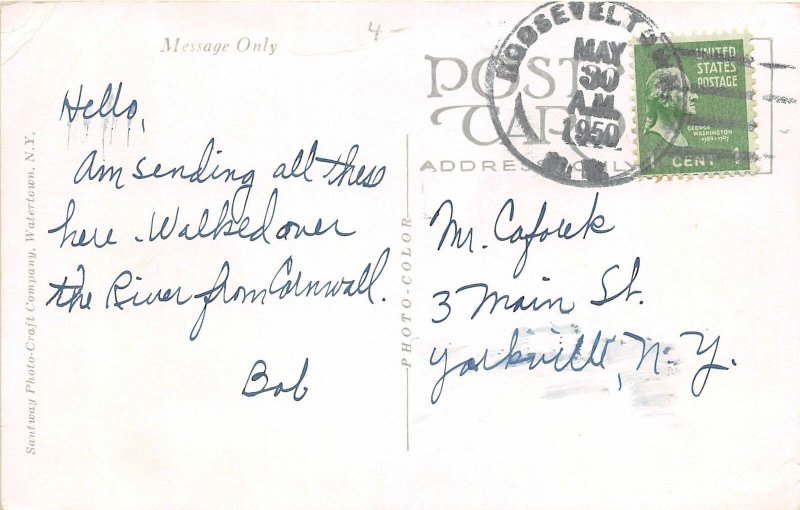 Message Only
4-
Hello,
Am sending all these
here. Walked over
the River from Cornwall.
Bob
Santway Photo-Craft Company, Watertown, N.Y.
PHOTO-COLOR
POST
CARD
ADDRESS ONLY
ROOSEVELTOWN
MAY
30
A.M.
1950
N.Y.
UNITED
STATES
POSTAGE
GEORGE
WASHINGTON
1789-1797
1 CENT 1
Mr.
3 Main St.
Yorkville, N-Y.